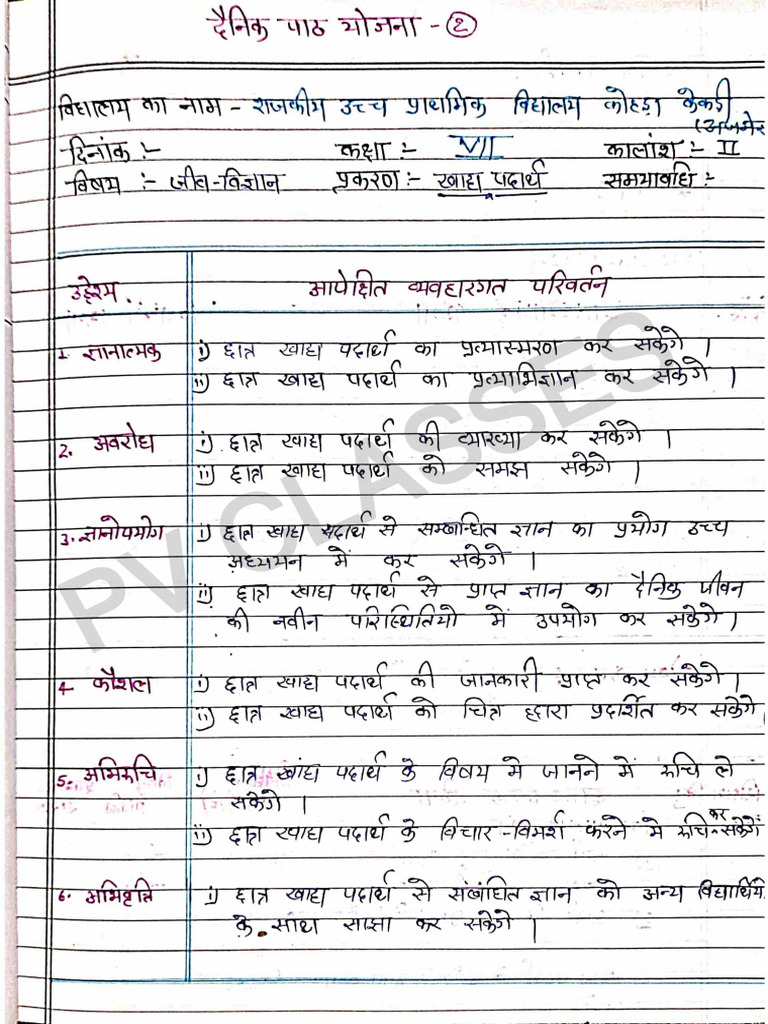 दैनिक पाठ योजना - 2
विद्यालय का नाम - राजकीय उच्च प्राथमिक विद्यालय कोहड़ा केकड़ी
(अजमेर
दिनांक :- कक्षा :- VII कालांश :- II
विषय :- जीव-विज्ञान प्रकरण :- खाद्य पदार्थ समयावधि :-
उद्देश्य . . . आपेक्षित व्यवहारगत परिवर्तन
1. ज्ञानात्मक i) छात्र खाद्य पदार्थ का प्रत्यास्मरण कर सकेगे ।
ii) छात्र खाद्य पदार्थ का प्रत्याभिज्ञान कर सकेगे ।
2. अवरोध i) छात्र खाद्य पदार्थ की व्याख्या कर सकेगे ।
ii) छात्र खाद्य पदार्थ को समझ सकेगे ।
3. ज्ञानोपयोग i) छात्र खाद्य पदार्थ से सम्बन्धित ज्ञान का प्रयोग उच्च
अध्ययन में कर सकेगे ।
ii) छात्र खाद्य पदार्थ से प्राप्त ज्ञान का दैनिक जीवन
की नवीन परिस्थितियो में उपयोग कर सकेगे ।
4 कौशल i) छात्र खाद्य पदार्थ की जानकारी प्राप्त कर सकेगे ।
ii) छात्र खाद्य पदार्थ को चित्र द्वारा प्रदर्शित कर सकेगे
5. अभिरुचि i) छात्र खाद्य पदार्थ के विषय मे जानने में रुचि ले
सकेगे ।
ii) छात्र खाद्य पदार्थ के विचार -विमर्श करने मे रुचि कर सकेगें
6. अभिवृत्ति i) छात्र खाद्य पदार्थ से संबंधित ज्ञान को अन्य विद्यार्थियो
के साथ साझा कर सकेगे ।
PV CLASSES